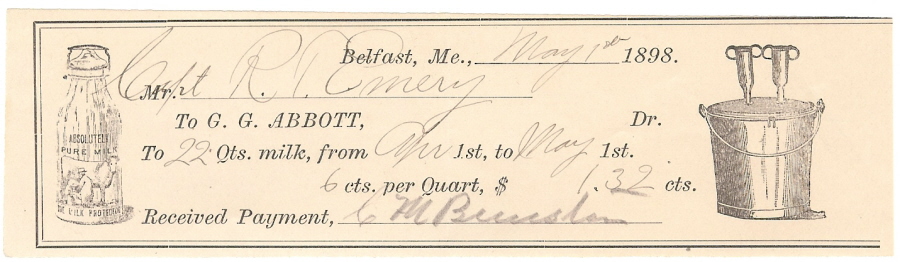 Belfast, Me., May 1st 1898.
Mr. Capt R. T. Emery
To G. G. ABBOTT, Dr.
To 22 Qts. milk, from Apr 1st, to May 1st.
6 cts. per Quart, $ 1.32 cts.
Received Payment, C M
ABSOLUTELY
PURE MILK
MILK PROTECTOR